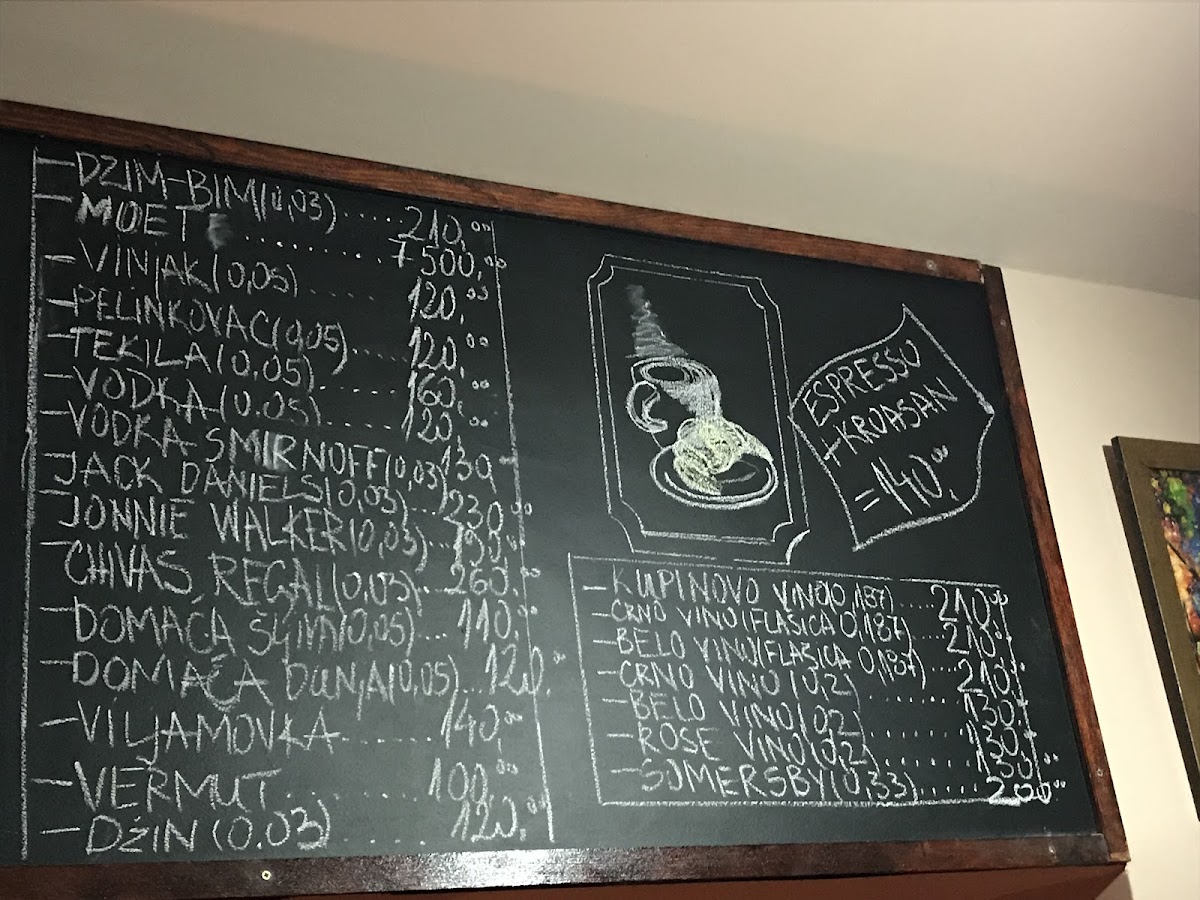 -DZIM-BIM(0,03)..... 210,00
-MOET ........... 7500,00
-VINJAK(0,05) ...... 120,00
-PELINKOVAC(0,05)..... 120,00
-TEKILA(0.05)....... 160,00
-VODKA(0.05)....... 120,00
-VODKA SMIRNOFF(0,03)130
JACK DANIELS(0,03)..230,00
-JONNIE WALKER(0,03)..190,00
-CHIVAS REGAL(0,03)..260,00
-DOMAĆA ŠLJIVA(0,05)... 110,00
-DOMAĆA DUNJA(0,05)...120,00
-VILJAMOVKA ...... 140,00
-VERMUT ........ 100,00
-DŽIN (0.03) ....... 120,00
ESPRESSO
+KROASAN
=140,00
-KUPINOVO VINO(0,187).....210,00
-CRNO VINO(FLAŠICA 0,187)...210,00
-BELO VINO(FLAŠICA 0,187)....210,00
-CRNO VINO (0,2) ........130,00
-BELO VINO(0,2) .......130,00
-ROSE VINO(0,2) .......130,00
-SOMERSBY(0,33)...... 200,00